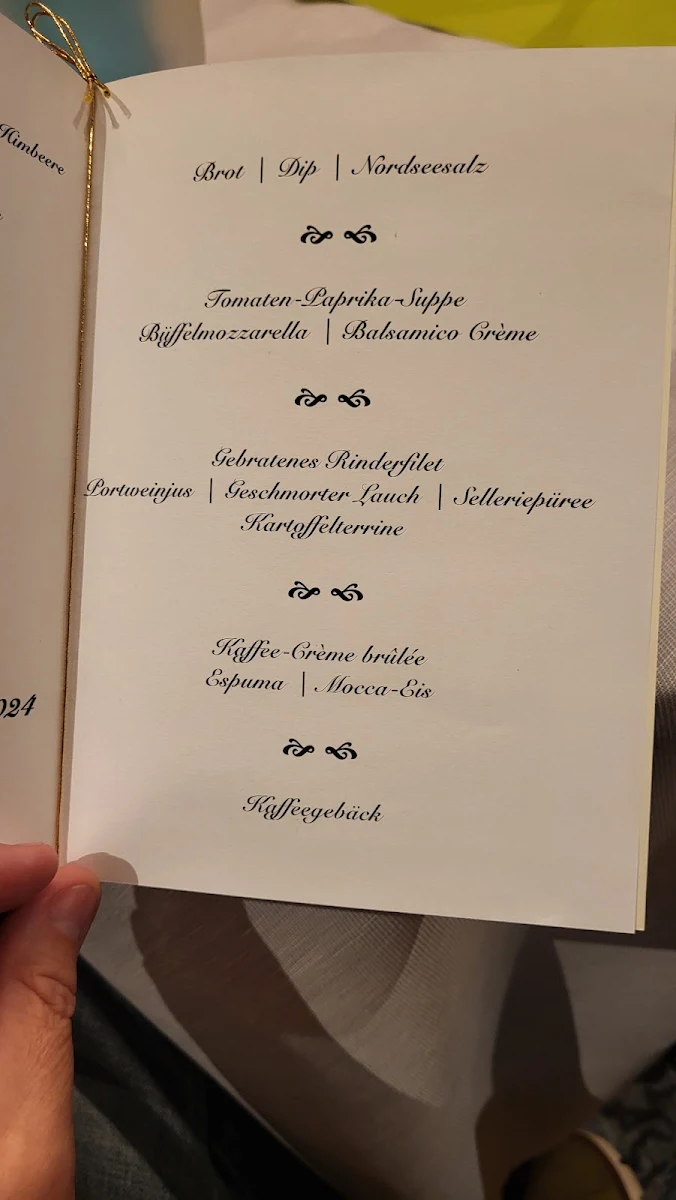 Himbeere
024
Brot | Dip | Nordseesalz
Tomaten-Paprika-Suppe
Büffelmozzarella | Balsamico Crème
Gebratenes Rinderfilet
Portweinjus | Geschmorter Lauch | Selleriepüree
Kartoffelterrine
Kaffee-Crème brûlée
Espuma | Mocca-Eis
Kaffeegebäck